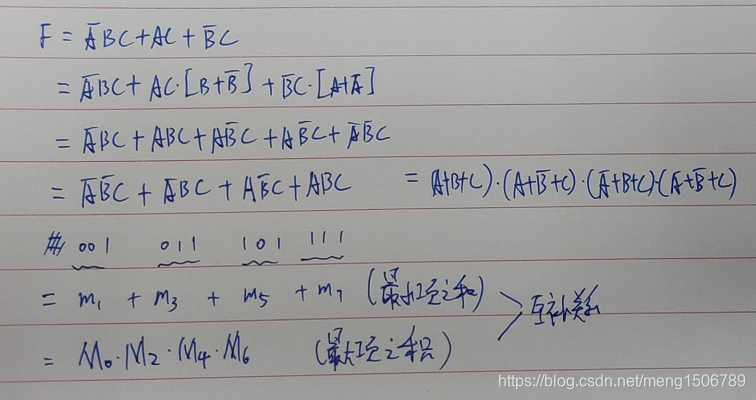 F = A̅BC + AC + B̅C
= A̅BC + AC·[B+B̅] + B̅C·[A+A̅]
= A̅BC + ABC + AB̅C + AB̅C + A̅B̅C
= A̅B̅C + A̅BC + AB̅C + ABC = (A+B+C)·(A+B̅+C)·(A̅+B+C)·(A̅+B̅+C)
001 011 101 111
= m₁ + m₃ + m₅ + m₇ (最小项之和)
互补关系
= M₀·M₂·M₄·M₆ (最大项之积)
https://blog.csdn.net/meng1506789